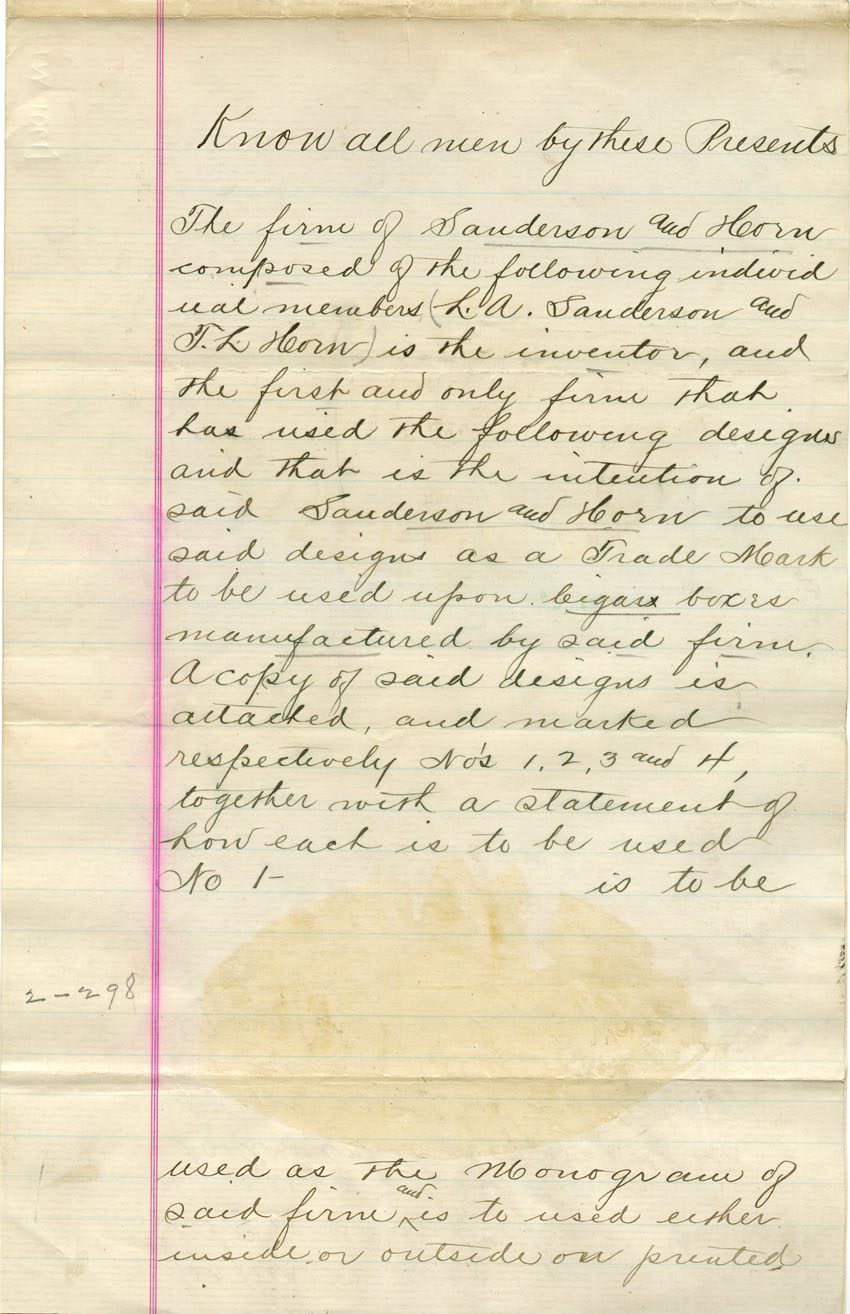 Know all men by these Presents
The firm of Sanderson and Horn
composed of the following individ
ual members (L. A. Sanderson and
T. L Horn) is the inventor, and
the first and only firm that
has used the following designs
and that is the intention of
said Sanderson and Horn to use
said designs as a Trade Mark
to be used upon Cigar boxes
manufactured by said firm.
A copy of said designs is
attached, and marked
respectively No's 1, 2, 3 and 4,
together with a statement of
how each is to be used
No 1- is to be
2-298
used as the Monogram of
said firm, and is to used either
inside or outside on printed